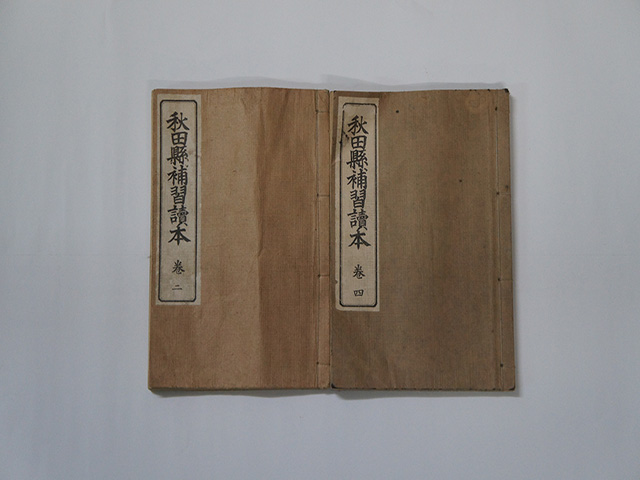 秋田縣補習讀本
卷二
秋田縣補習讀本
卷四